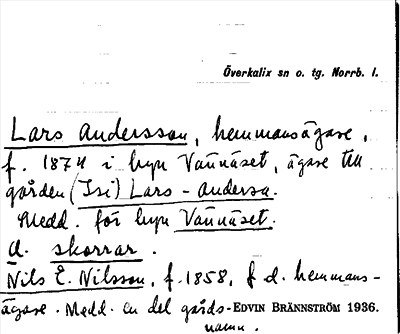 Överkalix sn o. tg. Norrb. l.
Lars Andersson, hemmansägare,
f. 1874 i byn Vännäset, ägare till
gården (Isi) Lars-Andersa.
Medd. för byn Vännäset.
d. skorrar.
Nils E. Nilsson, f. 1858, f d. hemmans-
ägare. Medd. en del gårds- EDVIN BRÄNNSTRÖM 1936.
namn.